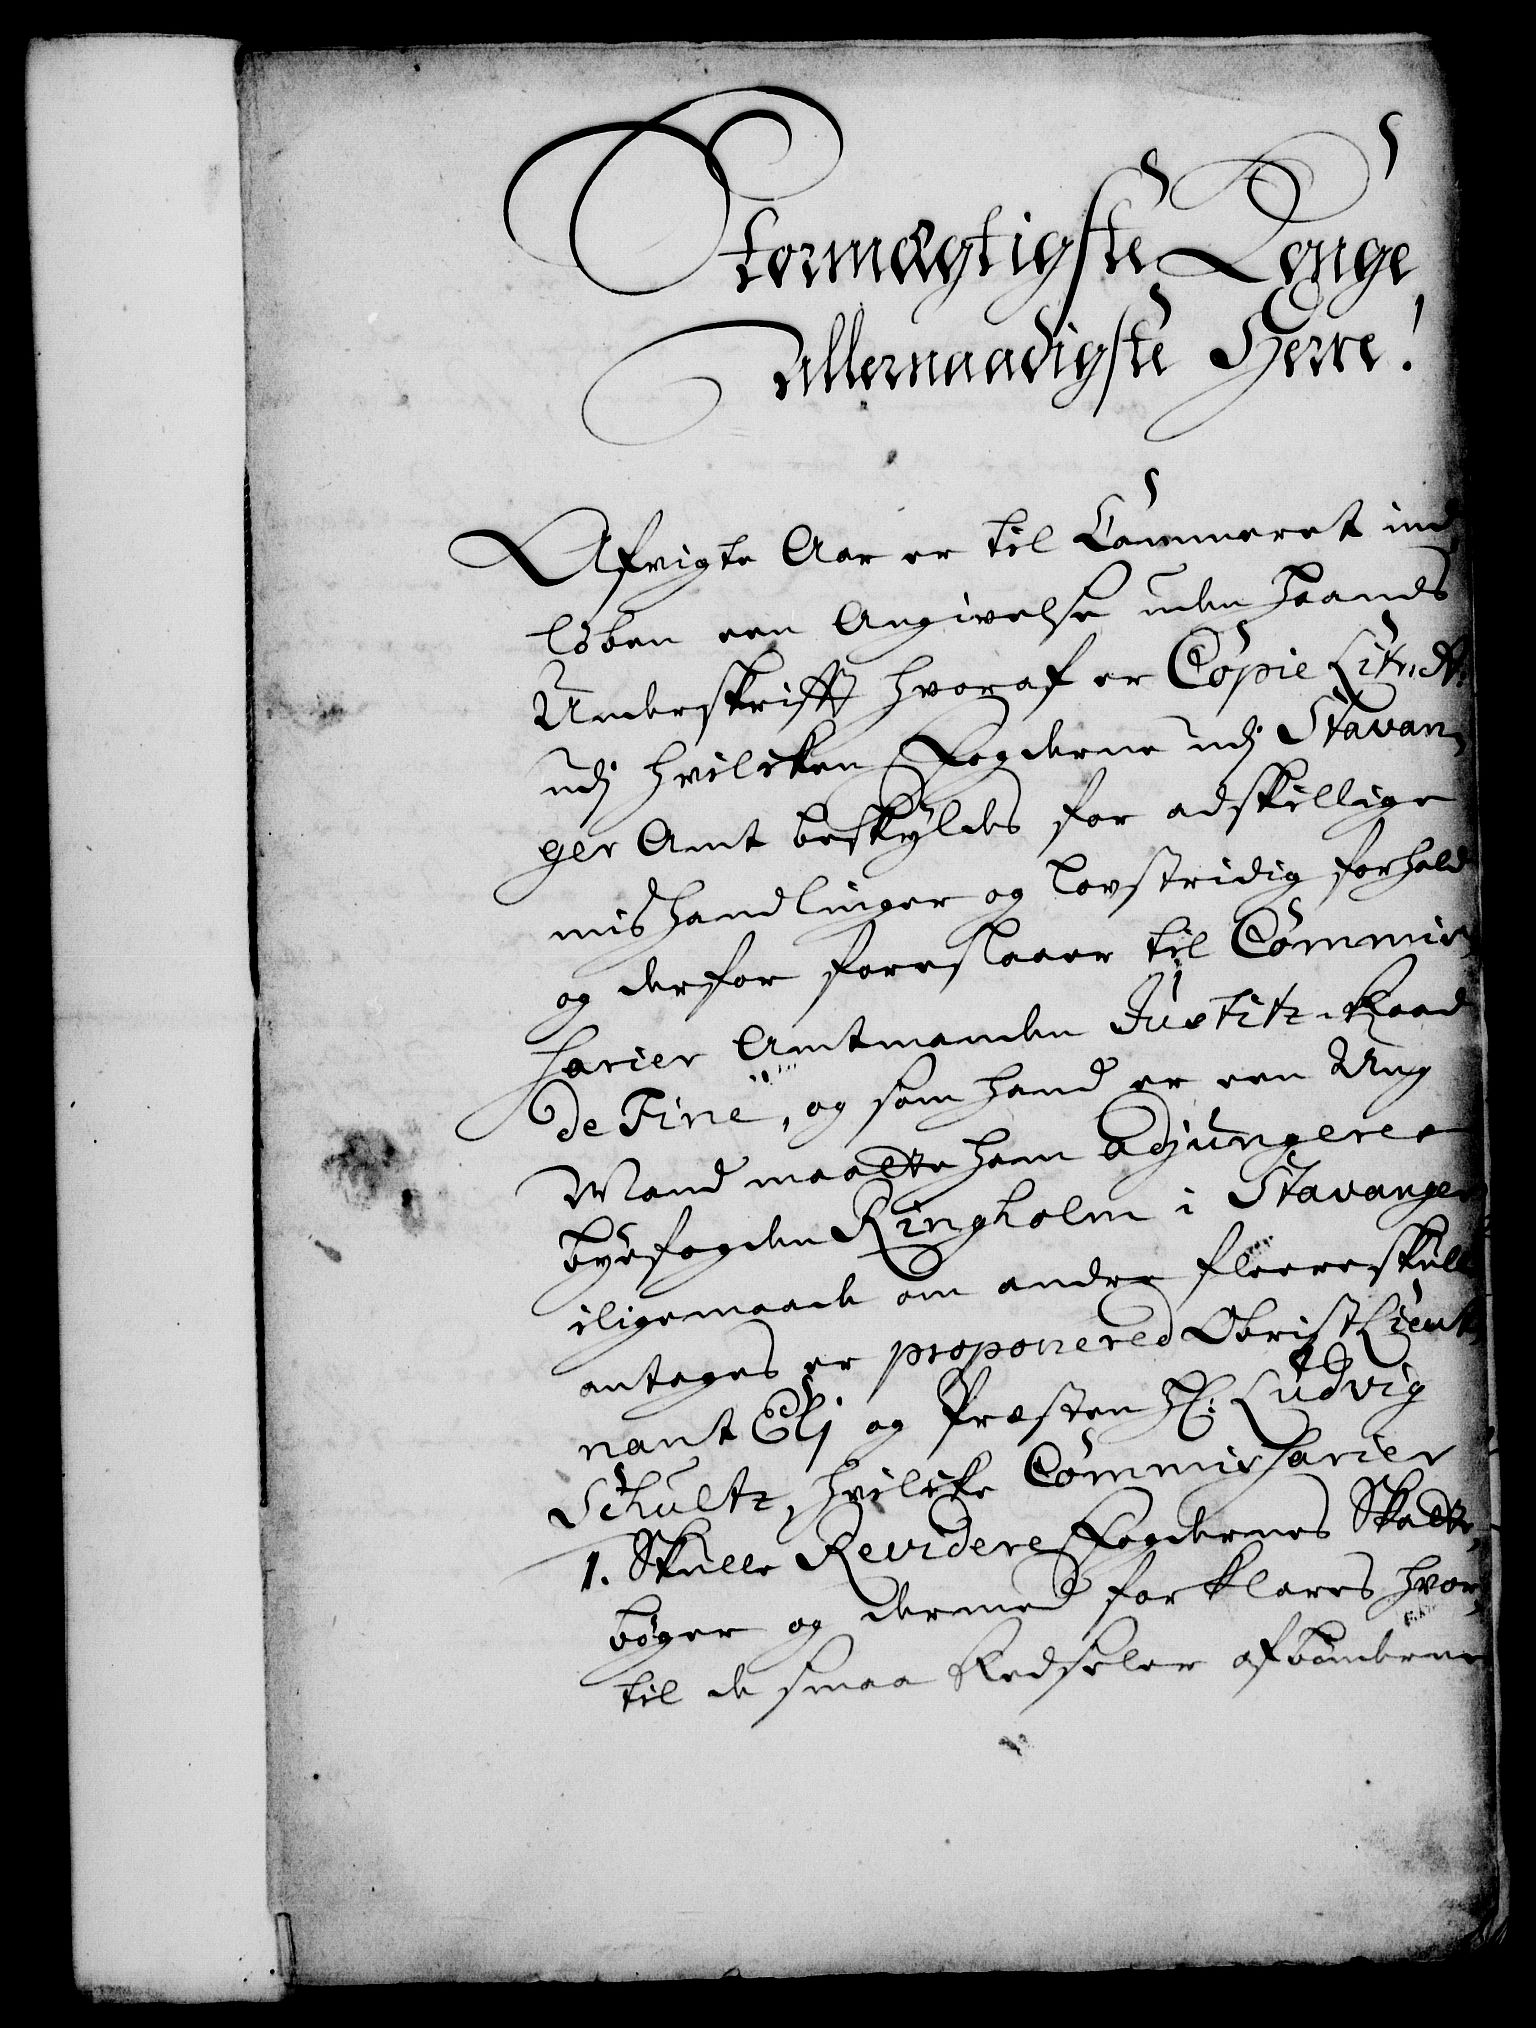 Stormægtigste Konge
Allernaadigste Herre!
Afvigte Aar er til Cammeret ind,
løben een Angivelse uden Haands
Underskrifft hvoraf er Copie Litr. A:
udj hvilcken Fogderne udj Stavan,
ger Amt beskyldes for adskillige
mishandlinger og Lovstridig forhold
og derfor foreslaaer til Commis,
sarier Amtmanden Justitz-Raad
De Fine, og som hand er een Ung
Mand maatte ham adjungeres
byefogden Ringholm i Stavanger
iligemaade om andre fleere skulle
antages er proponered Obrist Lieut,
nant Elj og Præsten Hr: Ludvig
Schultz, hvilcke Commissarier
1. Skulle Revidere Fogdernes Skatte,
bøger og dermed forklares hvor,
til de smaa Redseler af bønderne